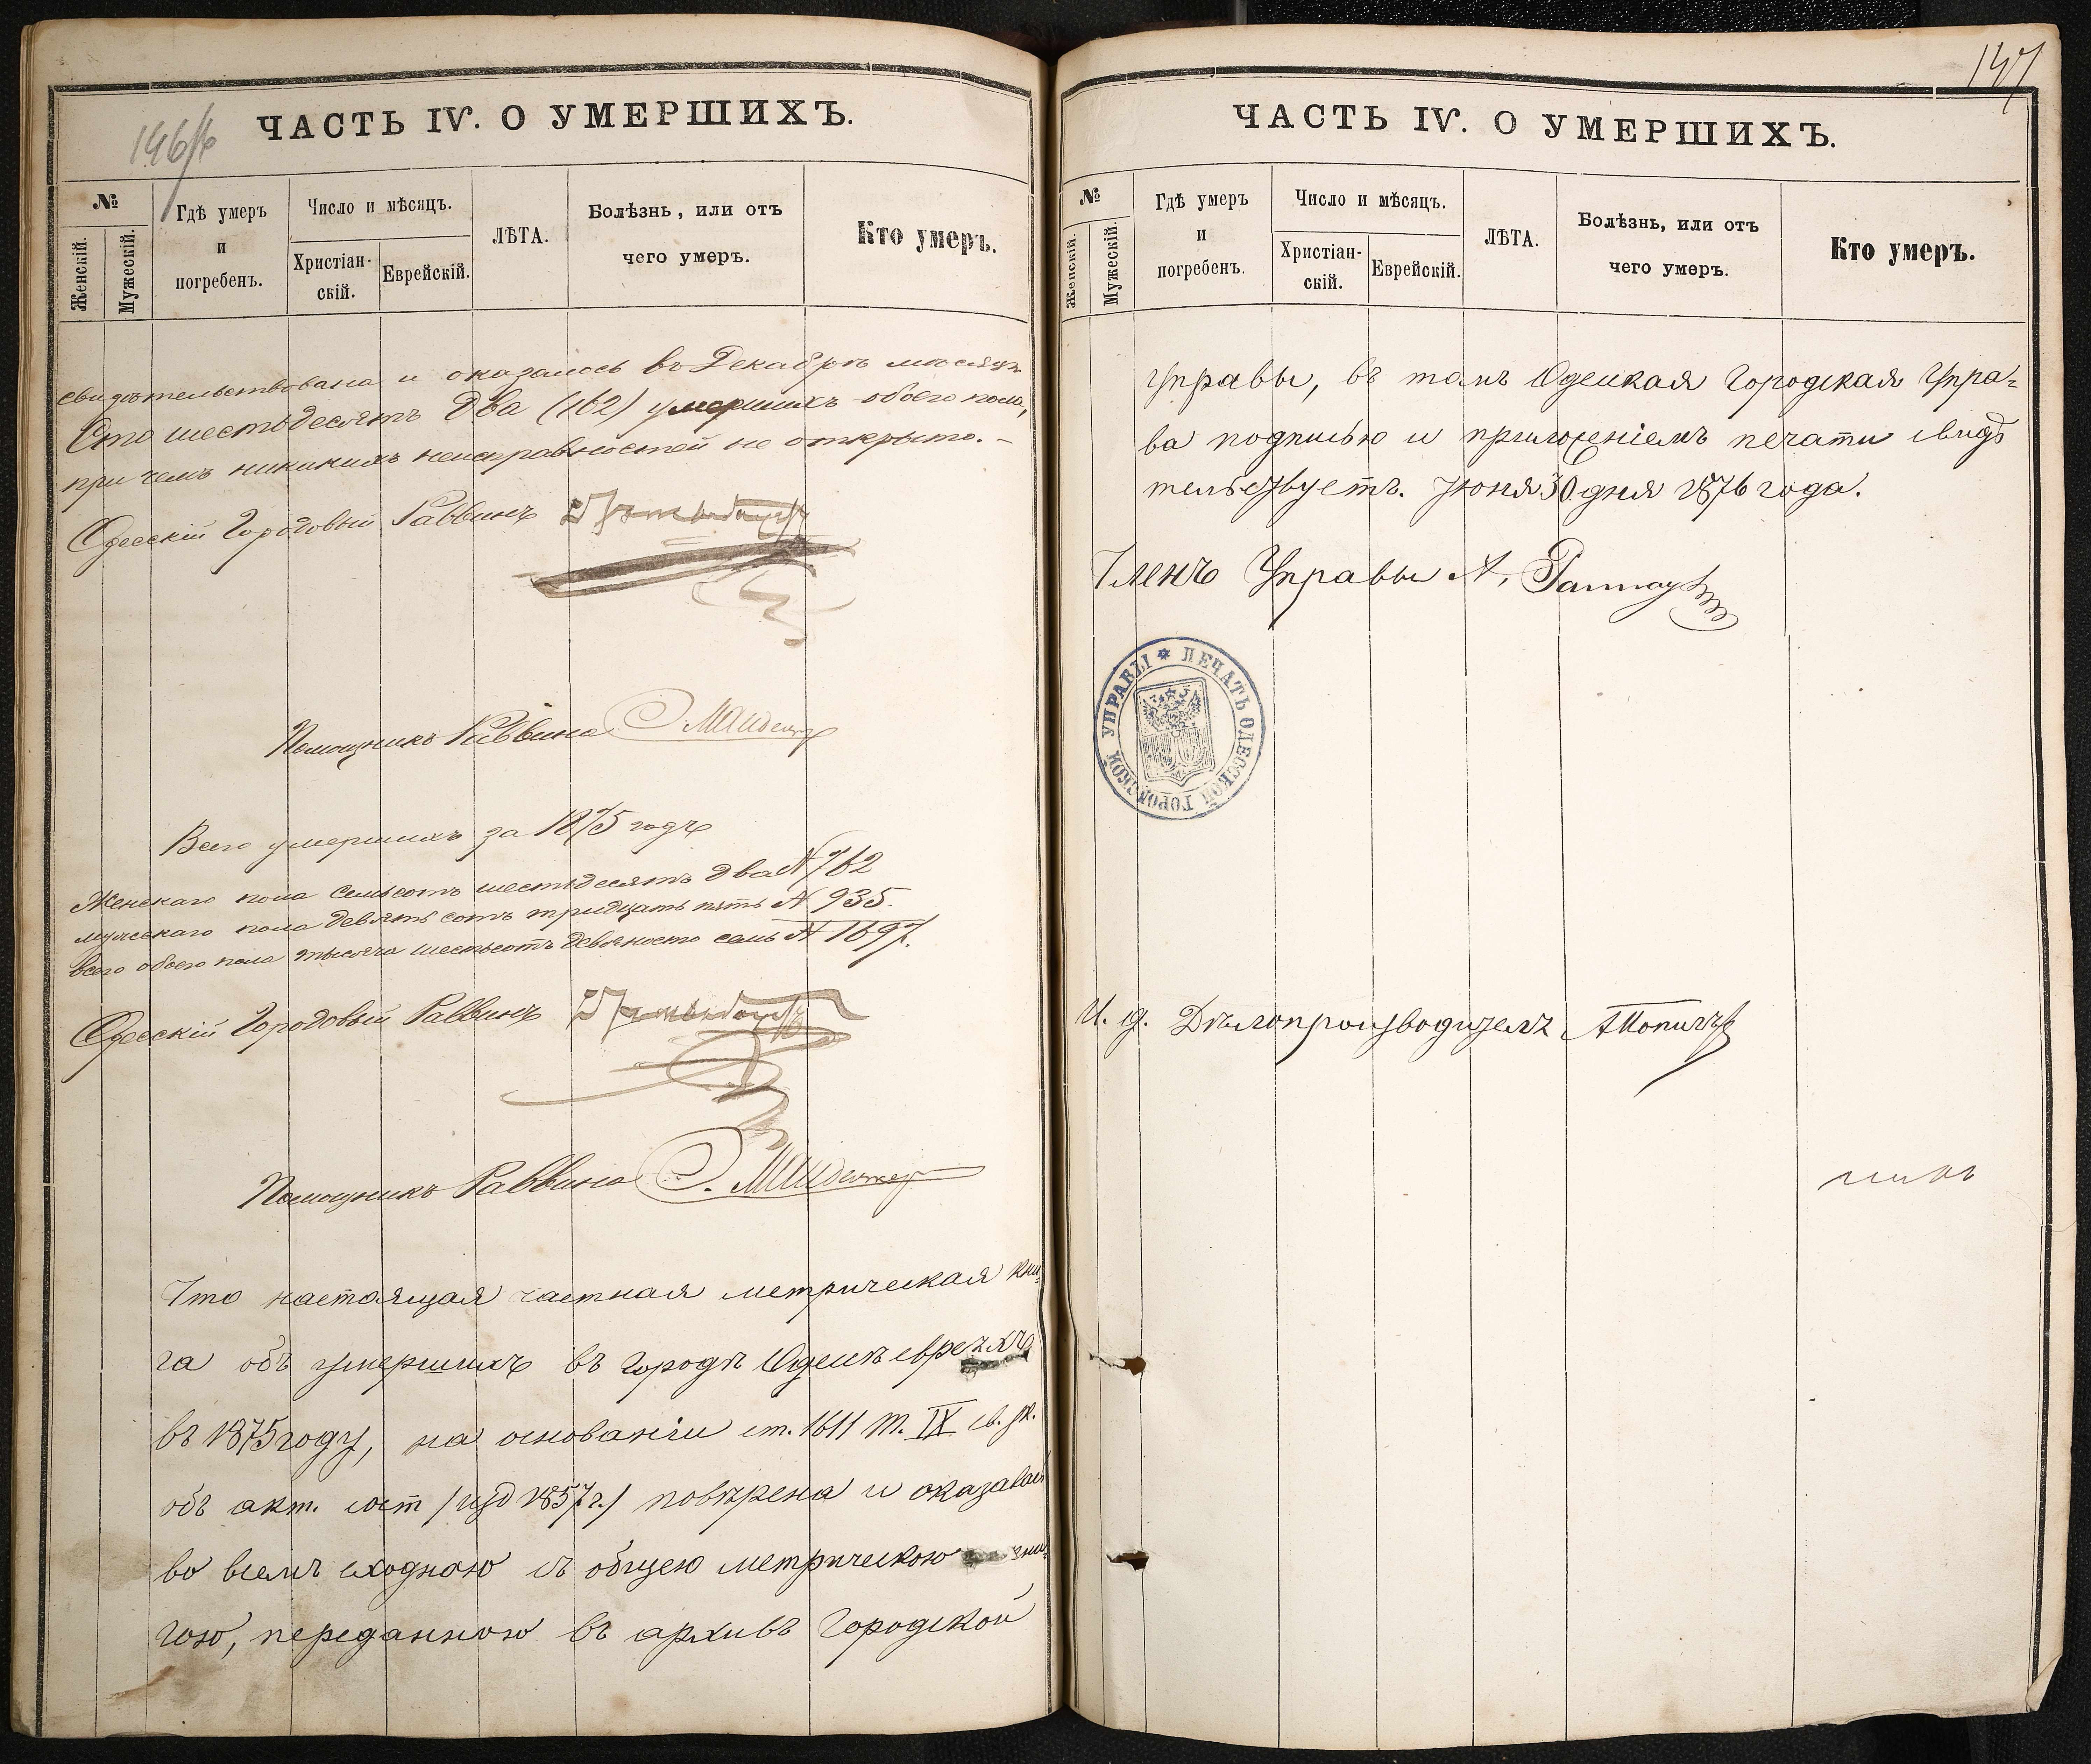 146
ЧАСТЬ IV. О УМЕРШИХЪ.
№
Женскій.
Мужескій.
Гдѣ умеръ
и
погребенъ.
Число и мѣсяцъ.
Христіан-
скій.
Еврейскій.
ЛѢТА.
Болѣзнь, или отъ
чего умеръ.
Кто умеръ.
свидѣтельствована и оказалось въ Декабрѣ мѣсяцѣ
Сто шестьдесятъ два (162) умершихъ обоего пола,
при чемъ никакихъ неисправностей не открыто. –
Одесскій Городовый Раввинъ
Помощникъ Раввина
Всего умершихъ за 1875 годъ
Женскаго пола семьсотъ шестьдесятъ два № 762
мужескаго пола девятьсотъ тридцать пять № 935.
всего обоего пола тысяча шестьсотъ девяносто семь № 1697.
Одесскій Городовый Раввинъ
Помощникъ Раввина
Что настоящая частная метрическая кни-
га объ умершихъ въ городѣ Одессѣ евреяхъ
въ 1875 году, на основаніи ст. 1611 т. IX св. зак.
объ акт. сост /изд 1857 г./ повѣрена и оказалась
во всемъ сходною съ общею метрическою кни-
гою, переданною въ архивъ Городской
147
ЧАСТЬ IV. О УМЕРШИХЪ.
№
Женскій.
Мужескій.
Гдѣ умеръ
и
погребенъ.
Число и мѣсяцъ.
Христіан-
скій.
Еврейскій.
ЛѢТА.
Болѣзнь, или отъ
чего умеръ.
Кто умеръ.
Управы, въ томъ Одесская Городская Упра-
ва подписью и приложеніемъ печати свидѣ
тельствуетъ. Іюня 30 дня 1876 года.
Членъ Управы А.
ПЕЧАТЬ ОДЕССКОЙ ГОРОДСКОЙ УПРАВЫ
И. д. Дѣлопроизводитель АПоповъ